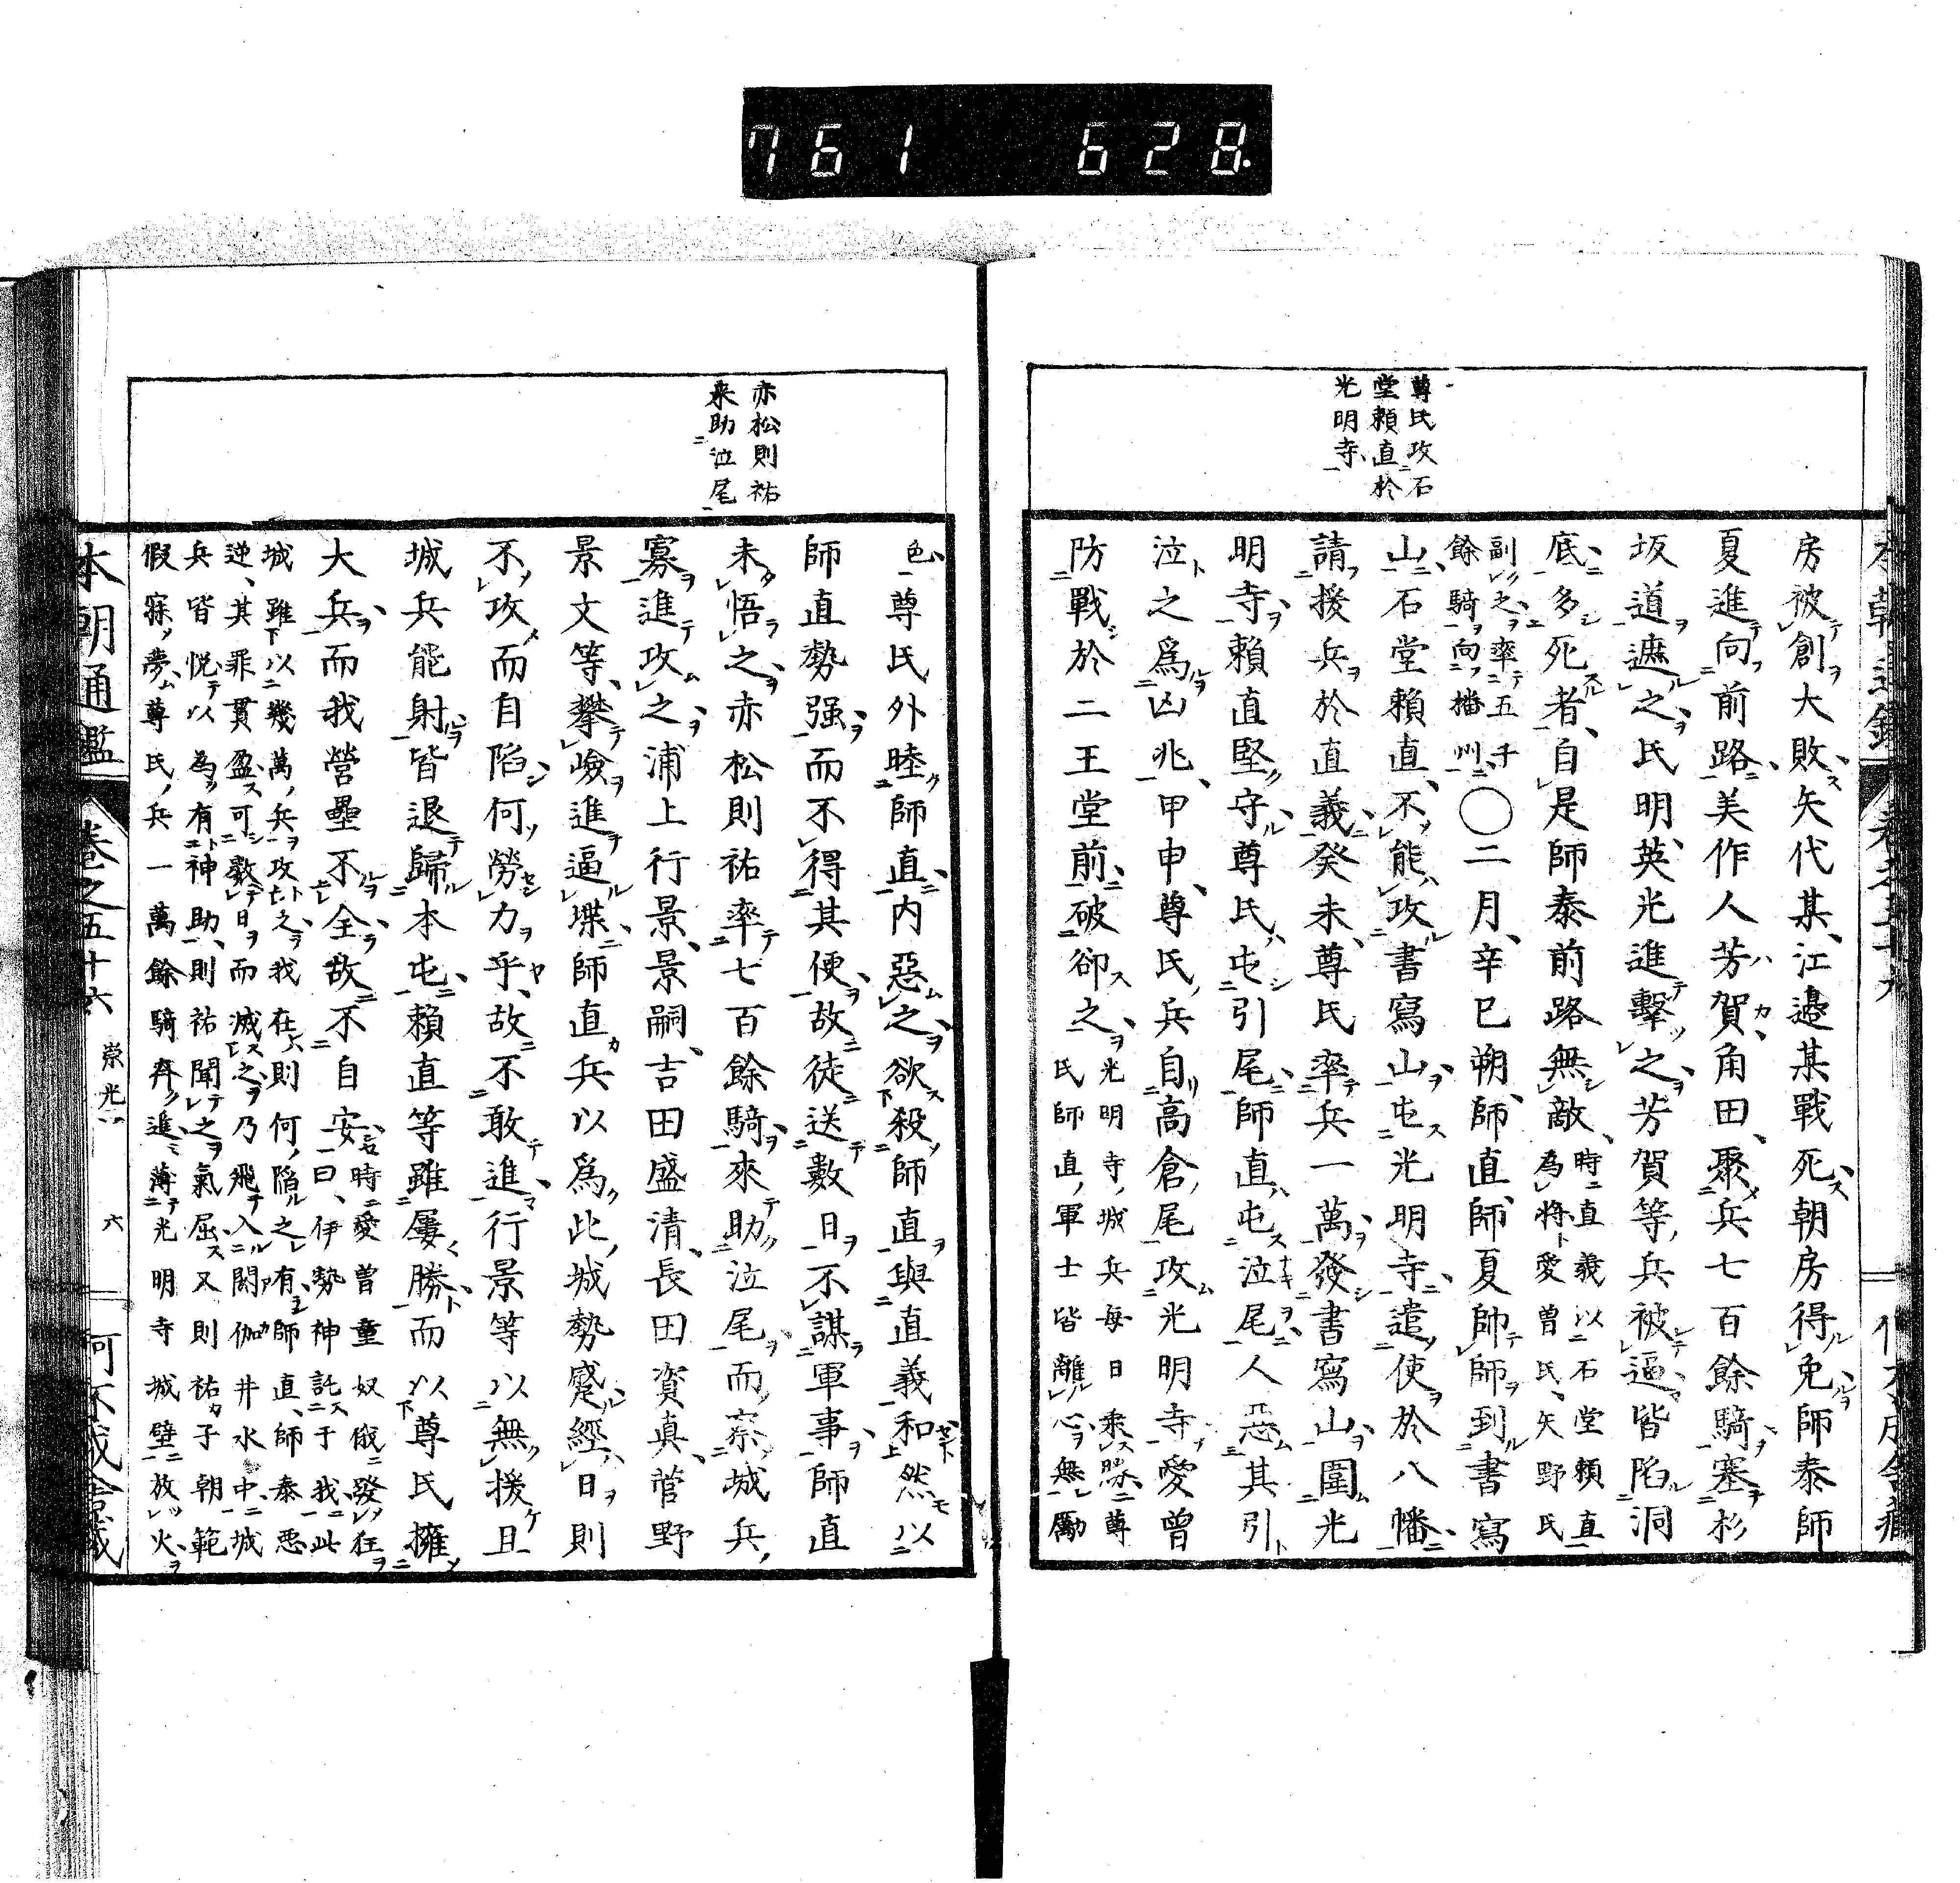 761 628.
尊氏攻石
堂頼直於
光明寺
房被創大敗矢代某江邉某戰死朝房得免師泰師
夏進向前路美作人芳賀角田聚兵七百餘騎塞杉
坂道遮之氏明英光進擊之芳賀等兵被逼皆陷洞
底多死者自是師泰前路無敵時直義以石堂頼直
為將愛曾氏矢野氏
副之率五千
餘騎向播州〇二月辛巳朔師直師夏帥師到書寫
山石堂頼直不能攻書寫山屯光明寺遣使於八幡
請援兵於直義癸未尊氏率兵一萬發書寫山圍光
明寺頼直堅守尊氏屯引尾師直屯泣尾人惡其引
泣之爲凶兆甲申尊氏兵自高倉尾攻光明寺愛曾
防戰於二王堂前破卻之光明寺城兵每日乘勝尊
氏師直軍士皆離心無勵
赤松則祐
来助泣尾
色尊氏外睦師直内惡之欲殺師直與直義和然以
師直勢强而不得其便故徒送數日不謀軍事師直
未悟之赤松則祐率七百餘騎來助泣尾而察城兵
寡進攻之浦上行景景嗣吉田盛清長田資真菅野
景文等攀嶮進逼堞師直兵以爲此城勢蹙經日則
不攻而自陷何勞力乎故不敢進行景等以無援且
城兵能射皆退歸本屯頼直等雖屢勝而以尊氏擁
大兵而我營壘不全故不自安時愛曾童奴俄發狂
曰伊勢神託于我此
城雖以幾萬兵攻之我在則何陷之有師直師泰惡
逆其罪貫盈可數日而滅之乃飛入閼伽井水中城
兵皆悦以為有神助則祐聞之氣屈又則祐子朝範
假寐夢尊氏兵一萬餘騎齊進薄光明寺城壁放火
本朝通鑑
卷之五十六
崇光一
六